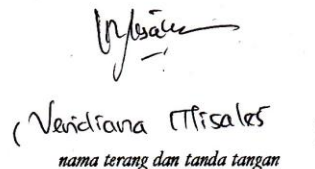 ( Veridiana Misales
nama terang dan tanda tangan